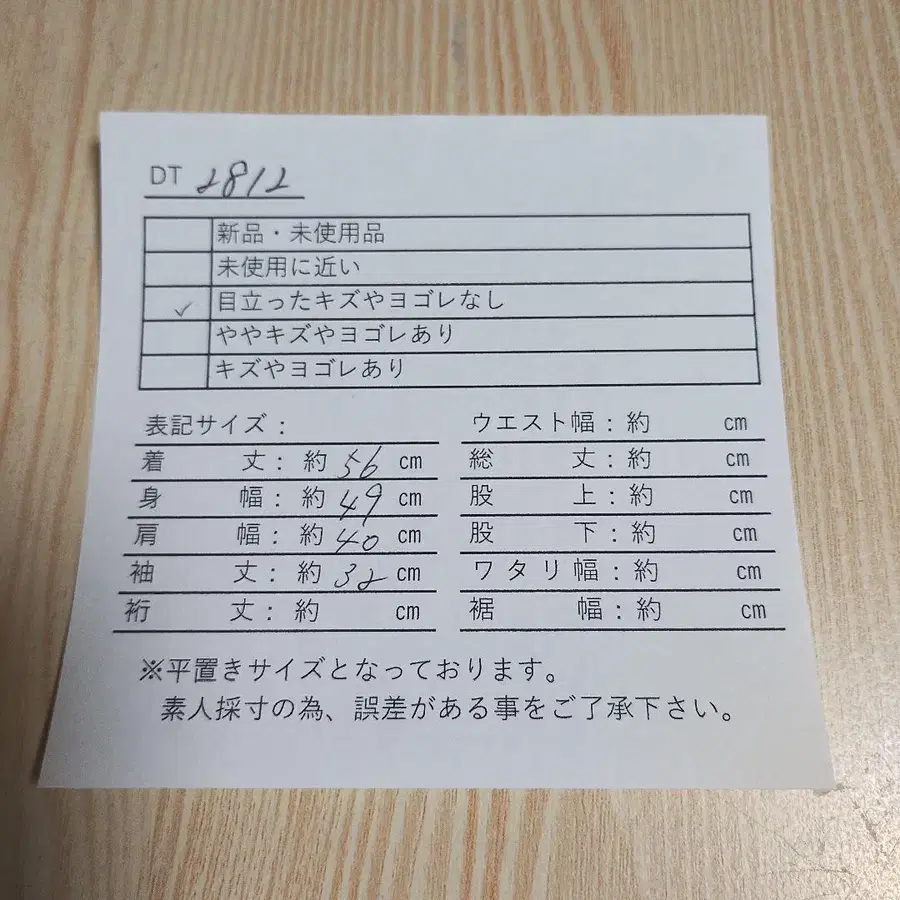 DT 2812
新品・未使用品
未使用に近い
✓ 目立ったキズやヨゴレなし
ややキズやヨゴレあり
キズやヨゴレあり
表記サイズ：
着丈：約 56 cm
身幅：約 49 cm
肩幅：約 40 cm
袖丈：約 32 cm
裄丈：約 cm
ウエスト幅：約 cm
総丈：約 cm
股上：約 cm
股下：約 cm
ワタリ幅：約 cm
裾幅：約 cm
※平置きサイズとなっております。
素人採寸の為、誤差がある事をご了承下さい。